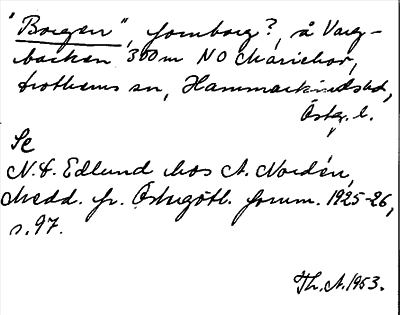 "Borgen", fornborg?, å Varg-
backen 300 m NO Mariehov,
Trothems sn, Hammarkinds hd,
Östg. l.
Se
N. F. Edlund hos A. Nordén,
Medd. fr. Östergötl. fornm. 1925-26,
s. 97.
Th. A. 1953.